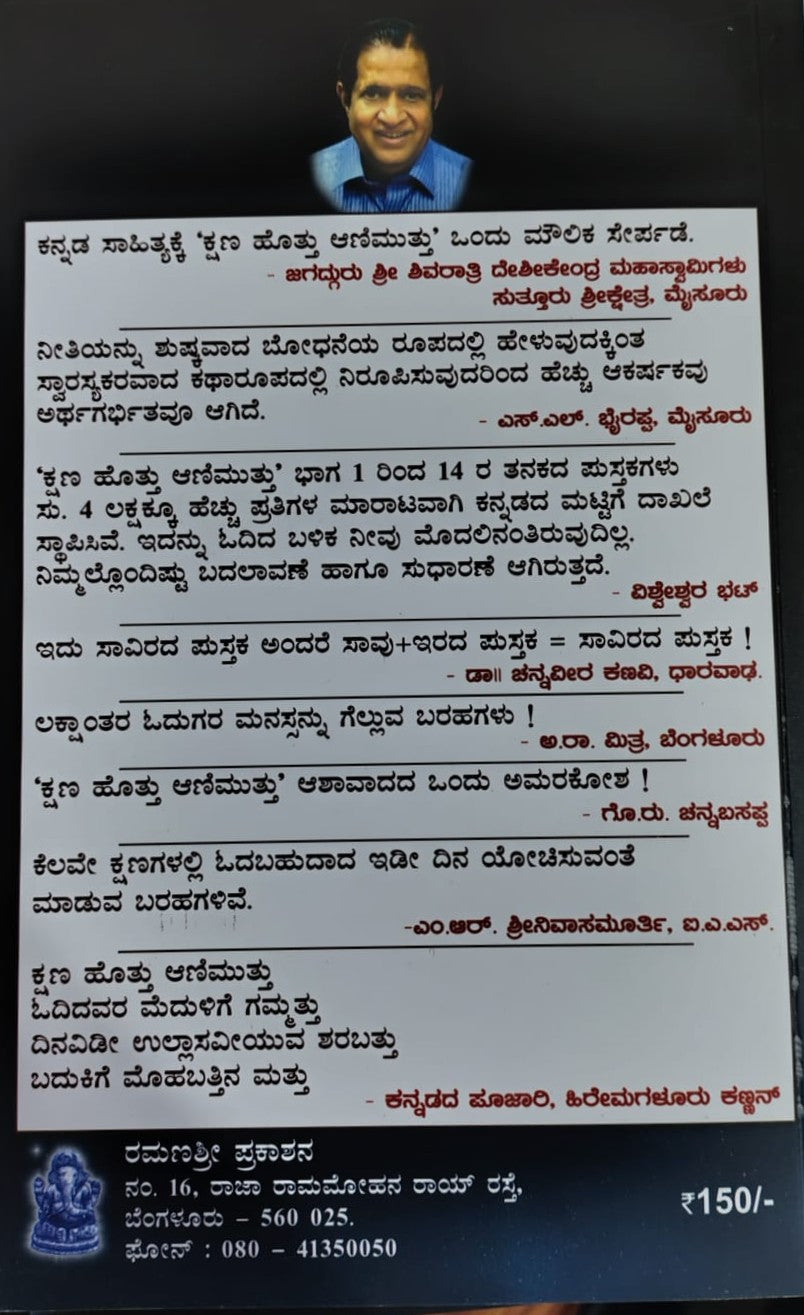 ಕನ್ನಡ ಸಾಹಿತ್ಯಕ್ಕೆ ‘ಕ್ಷಣ ಹೊತ್ತು ಆಣಿಮುತ್ತು’ ಒಂದು ಮೌಲಿಕ ಸೇರ್ಪಡೆ.
- ಜಗದ್ಗುರು ಶ್ರೀ ಶಿವರಾತ್ರಿ ದೇಶೀಕೇಂದ್ರ ಮಹಾಸ್ವಾಮಿಗಳು
ಸುತ್ತೂರು ಶ್ರೀಕ್ಷೇತ್ರ, ಮೈಸೂರು
ನೀತಿಯನ್ನು ಶುಷ್ಕವಾದ ಬೋಧನೆಯ ರೂಪದಲ್ಲಿ ಹೇಳುವುದಕ್ಕಿಂತ
ಸ್ವಾರಸ್ಯಕರವಾದ ಕಥಾರೂಪದಲ್ಲಿ ನಿರೂಪಿಸುವುದರಿಂದ ಹೆಚ್ಚು ಆಕರ್ಷಕವು
ಅರ್ಥಗರ್ಭಿತವೂ ಆಗಿದೆ.
- ಎಸ್.ಎಲ್. ಭೈರಪ್ಪ, ಮೈಸೂರು
‘ಕ್ಷಣ ಹೊತ್ತು ಆಣಿಮುತ್ತು’ ಭಾಗ 1 ರಿಂದ 14 ರ ತನಕದ ಪುಸ್ತಕಗಳು
ಸು. 4 ಲಕ್ಷಕ್ಕೂ ಹೆಚ್ಚು ಪ್ರತಿಗಳ ಮಾರಾಟವಾಗಿ ಕನ್ನಡದ ಮಟ್ಟಿಗೆ ದಾಖಲೆ
ಸ್ಥಾಪಿಸಿವೆ. ಇದನ್ನು ಓದಿದ ಬಳಿಕ ನೀವು ಮೊದಲಿನಂತಿರುವುದಿಲ್ಲ.
ನಿಮ್ಮಲ್ಲೊಂದಿಷ್ಟು ಬದಲಾವಣೆ ಹಾಗೂ ಸುಧಾರಣೆ ಆಗಿರುತ್ತದೆ.
- ವಿಶ್ವೇಶ್ವರ ಭಟ್
ಇದು ಸಾವಿರದ ಪುಸ್ತಕ ಅಂದರೆ ಸಾವು+ಇರದ ಪುಸ್ತಕ = ಸಾವಿರದ ಪುಸ್ತಕ !
- ಡಾ॥ ಚನ್ನವೀರ ಕಣವಿ, ಧಾರವಾಢ.
ಲಕ್ಷಾಂತರ ಓದುಗರ ಮನಸ್ಸನ್ನು ಗೆಲ್ಲುವ ಬರಹಗಳು !
- ಅ.ರಾ. ಮಿತ್ರ, ಬೆಂಗಳೂರು
‘ಕ್ಷಣ ಹೊತ್ತು ಆಣಿಮುತ್ತು’ ಆಶಾವಾದದ ಒಂದು ಅಮರಕೋಶ !
- ಗೊ.ರು. ಚನ್ನಬಸಪ್ಪ
ಕೆಲವೇ ಕ್ಷಣಗಳಲ್ಲಿ ಓದಬಹುದಾದ ಇಡೀ ದಿನ ಯೋಚಿಸುವಂತೆ
ಮಾಡುವ ಬರಹಗಳಿವೆ.
-ಎಂ.ಆರ್. ಶ್ರೀನಿವಾಸಮೂರ್ತಿ, ಐ.ಎ.ಎಸ್.
ಕ್ಷಣ ಹೊತ್ತು ಆಣಿಮುತ್ತು
ಓದಿದವರ ಮೆದುಳಿಗೆ ಗಮ್ಮತ್ತು
ದಿನವಿಡೀ ಉಲ್ಲಾಸವೀಯುವ ಶರಬತ್ತು
ಬದುಕಿಗೆ ಮೊಹಬತ್ತಿನ ಮತ್ತು
- ಕನ್ನಡದ ಪೂಜಾರಿ, ಹಿರೇಮಗಳೂರು ಕಣ್ಣನ್
ರಮಣಶ್ರೀ ಪ್ರಕಾಶನ
ನಂ. 16, ರಾಜಾ ರಾಮಮೋಹನ ರಾಯ್ ರಸ್ತೆ,
ಬೆಂಗಳೂರು – 560 025.
ಫೋನ್ : 080 – 41350050
₹150/-